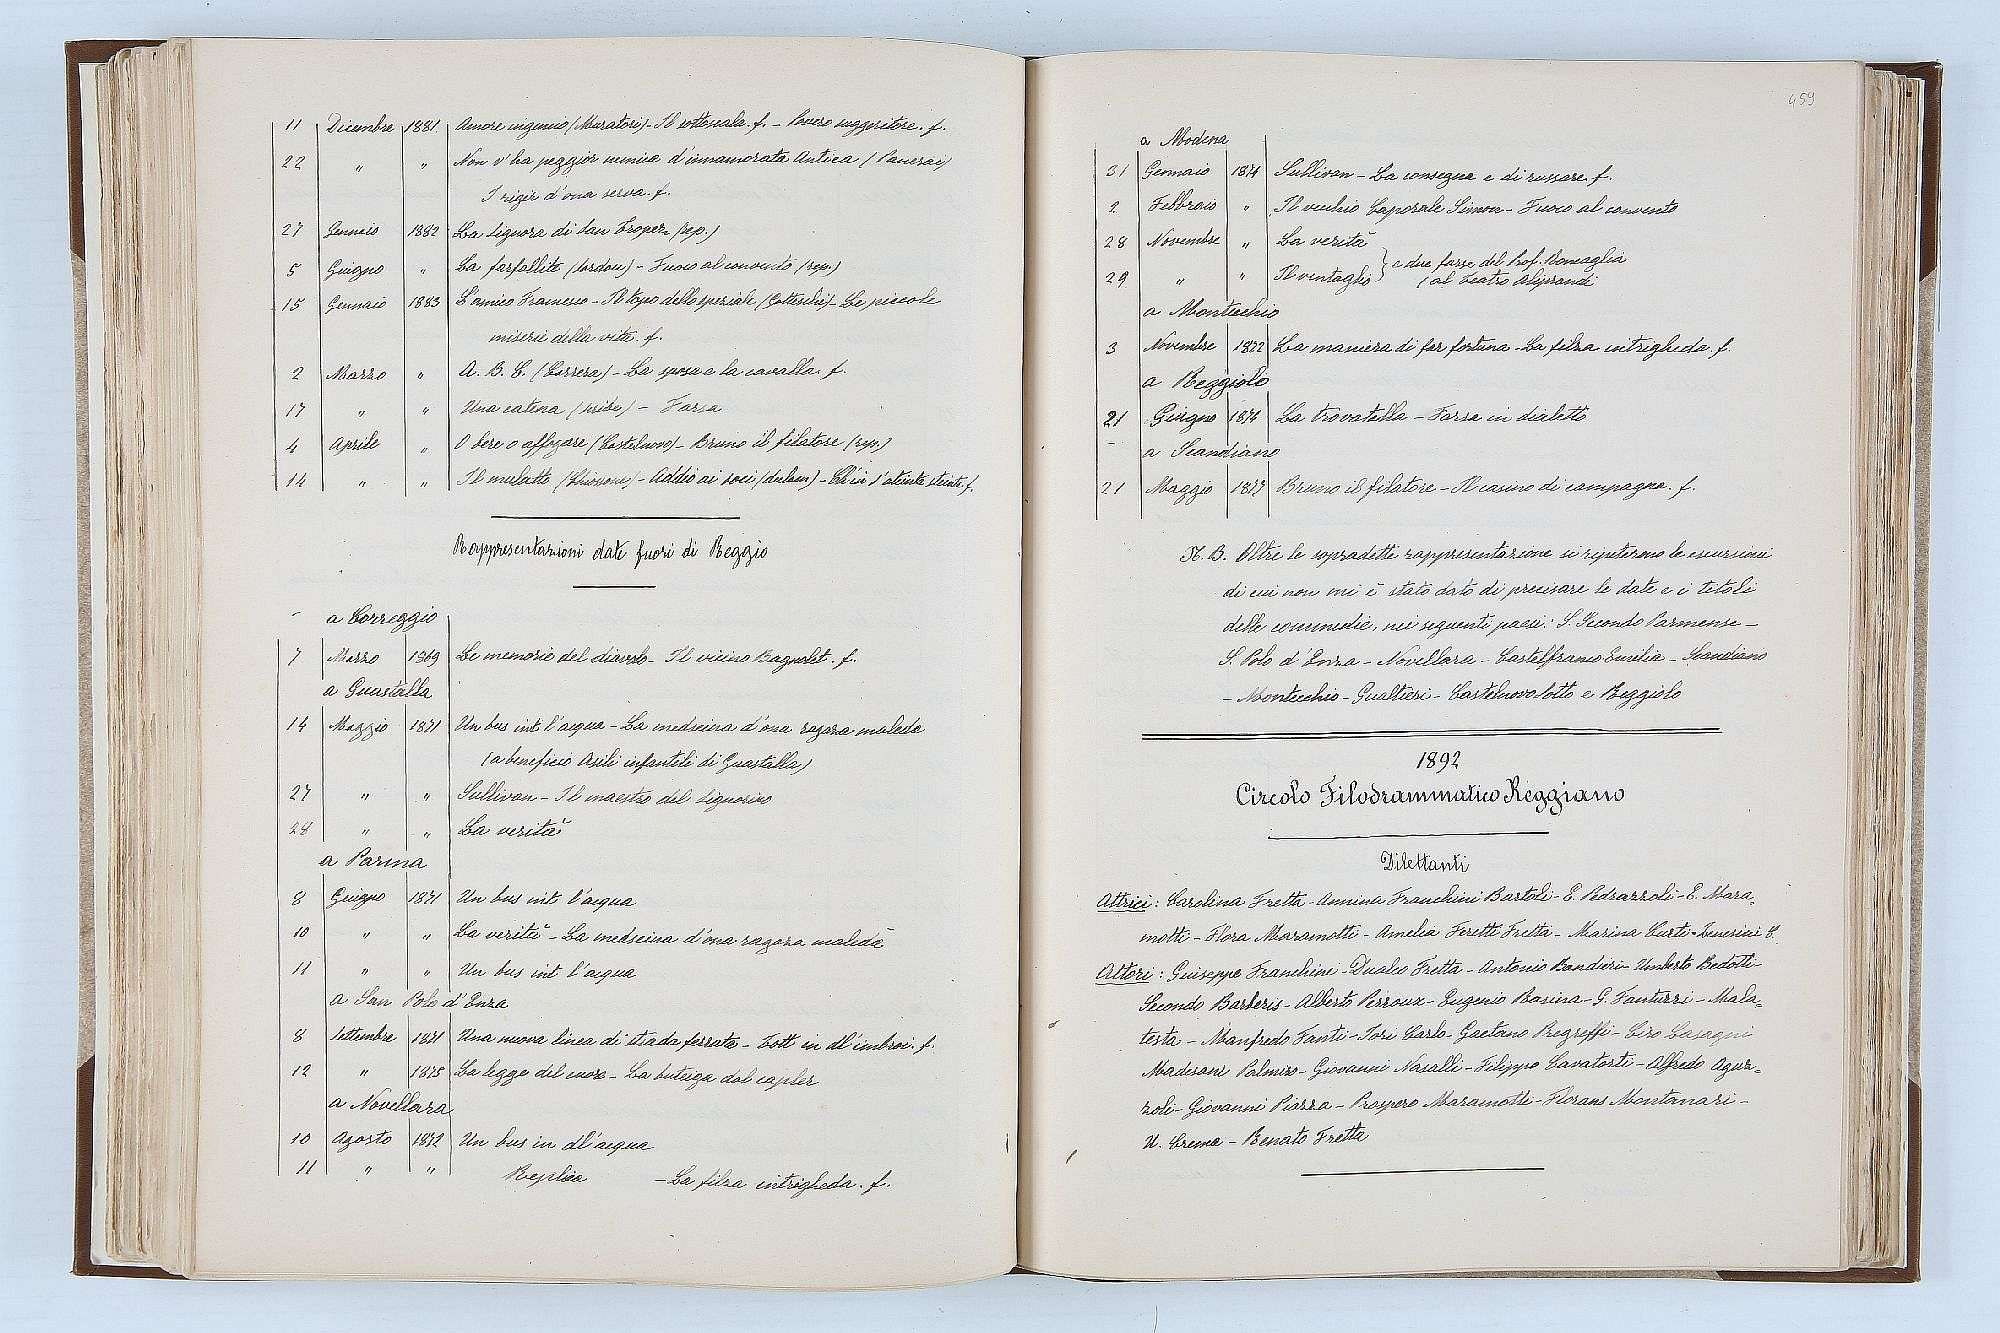 11 Dicembre 1881 Amore ingenuo (Muratori) - Il sottoscala. f. - Povero suggeritore. f.
22 " " Non v'ha peggior nemica d'innamorata Antica (Panerai)
I rigir d'ona serva. f.
27 Gennaio 1882 La Signora di San Tropez (rep.)
5 Giugno " La farfallite (Sardou) - Fuoco al convento (rep.)
15 Gennaio 1883 L'amico Francesco - Il topo dello speziale (Gotteschi) - Le piccole
miserie della vita. f.
2 Marzo " A. B. C. (Carrera) - La sposa e la cavalla. f.
17 " " Una catena (Scribe) - Farsa
4 Aprile " O bere o affogare (Castelnuovo) - Bruno il filatore (rep.)
14 " " Il mulatto (Chiossoni) - Addio ai soci
Rappresentazioni date fuori di Reggio
a Correggio
7 Marzo 1869 Le memorie del diavolo - Il vicino Bagnolet. f.
a Guastalla
14 Maggio 1871 Un bus int l'acqua - La medseina d'ona ragaza maleda
(a beneficio Asili infantili di Guastalla)
27 " " Sullivan - Il maestro del Signorino
28 " " La verità
a Parma
8 Giugno 1871 Un bus int l'acqua
10 " " La verità - La medseina d'ona ragaza maleda
11 " " Un bus int l'acqua
a San Polo d'Enza
8 Settembre 1871 Una nuova linea di strada ferrata - Tott in dl'imbroi. f.
12 " 1875 La legge del cuore - La buteiga dal caplèr
a Novellara
10 Agosto 1872 Un bus in dl'acqua
11 " " Replica - La filza intrigheda. f.
459
a Modena
31 Gennaio 1874 Sullivan - La consegna è di russare. f.
2 Febbraio " Il vecchio Caporale Simon - Fuoco al convento
28 Novembre " La verità } e due farse del Prof. Boncaglia
29 " " Il ventaglio } (al Teatro Aliprandi
a Montecchio
3 Novembre 1872 La maniera di far fortuna - La filza intrigheda. f.
a Reggiolo
21 Giugno 1874 La trovatella - Farsa in dialetto
a Scandiano
21 Maggio 1877 Bruno il filatore - Il casino di campagna. f.
N. B. Oltre le sopradette rappresentazione si ripeterono le escursioni
di cui non mi è stato dato di precisare le date e i titoli
delle commedie, nei seguenti paesi: S. Secondo Parmense -
S. Polo d'Enza - Novellara - Castelfranco Emilia - Scandiano
- Montecchio - Gualtieri - Castelnovo Sotto e Reggiolo
1892
Circolo Filodrammatico Reggiano
Dilettanti
Attrici: Carolina Fretta - Annina Franchini Bartoli - E. Pedrazzoli - E. Mara=
motti - Flora Maramotti - Amelia Feretti Fretta - Marina Curti - Zenerini C.
Attori: Giuseppe Franchini - Dualco Fretta - Antonio Bandieri - Umberto Bedotti -
Secondo Barberis - Alberto Perroux - Eugenio Rosina - G. Fantuzzi - Mala=
testa - Manfredo Fanti - Jori Carlo - Gaetano Pregreffi - Ciro Casagni
Madesani Palmiro - Giovanni Nasalli - Filippo Cavatorti - Alfredo Aguz=
zoli - Giovanni Piazza - Prospero Maramotti - Florans Montanari -
U. Crema - Renato Fretta